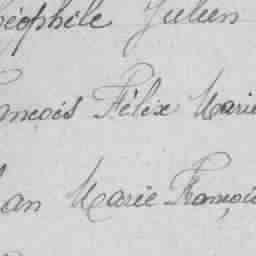 éophile Julien
ançois Félix Marie
an Marie Françoi